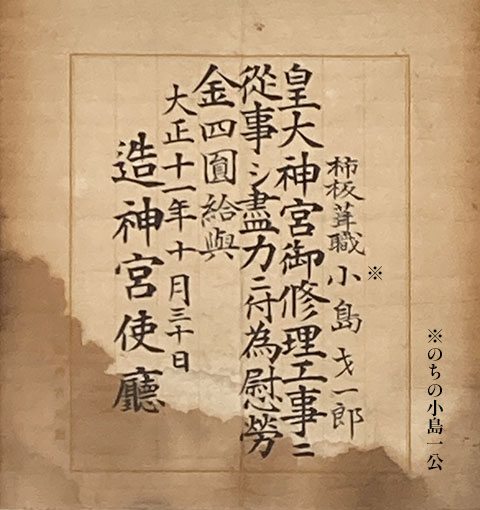 柿板葺職 小島才一郎
※
皇大神宮御修理工事ニ
從事シ盡力ニ付為慰勞
金四圓給與
大正十一年十月三十日
造神宮使廳
※のちの小島一公